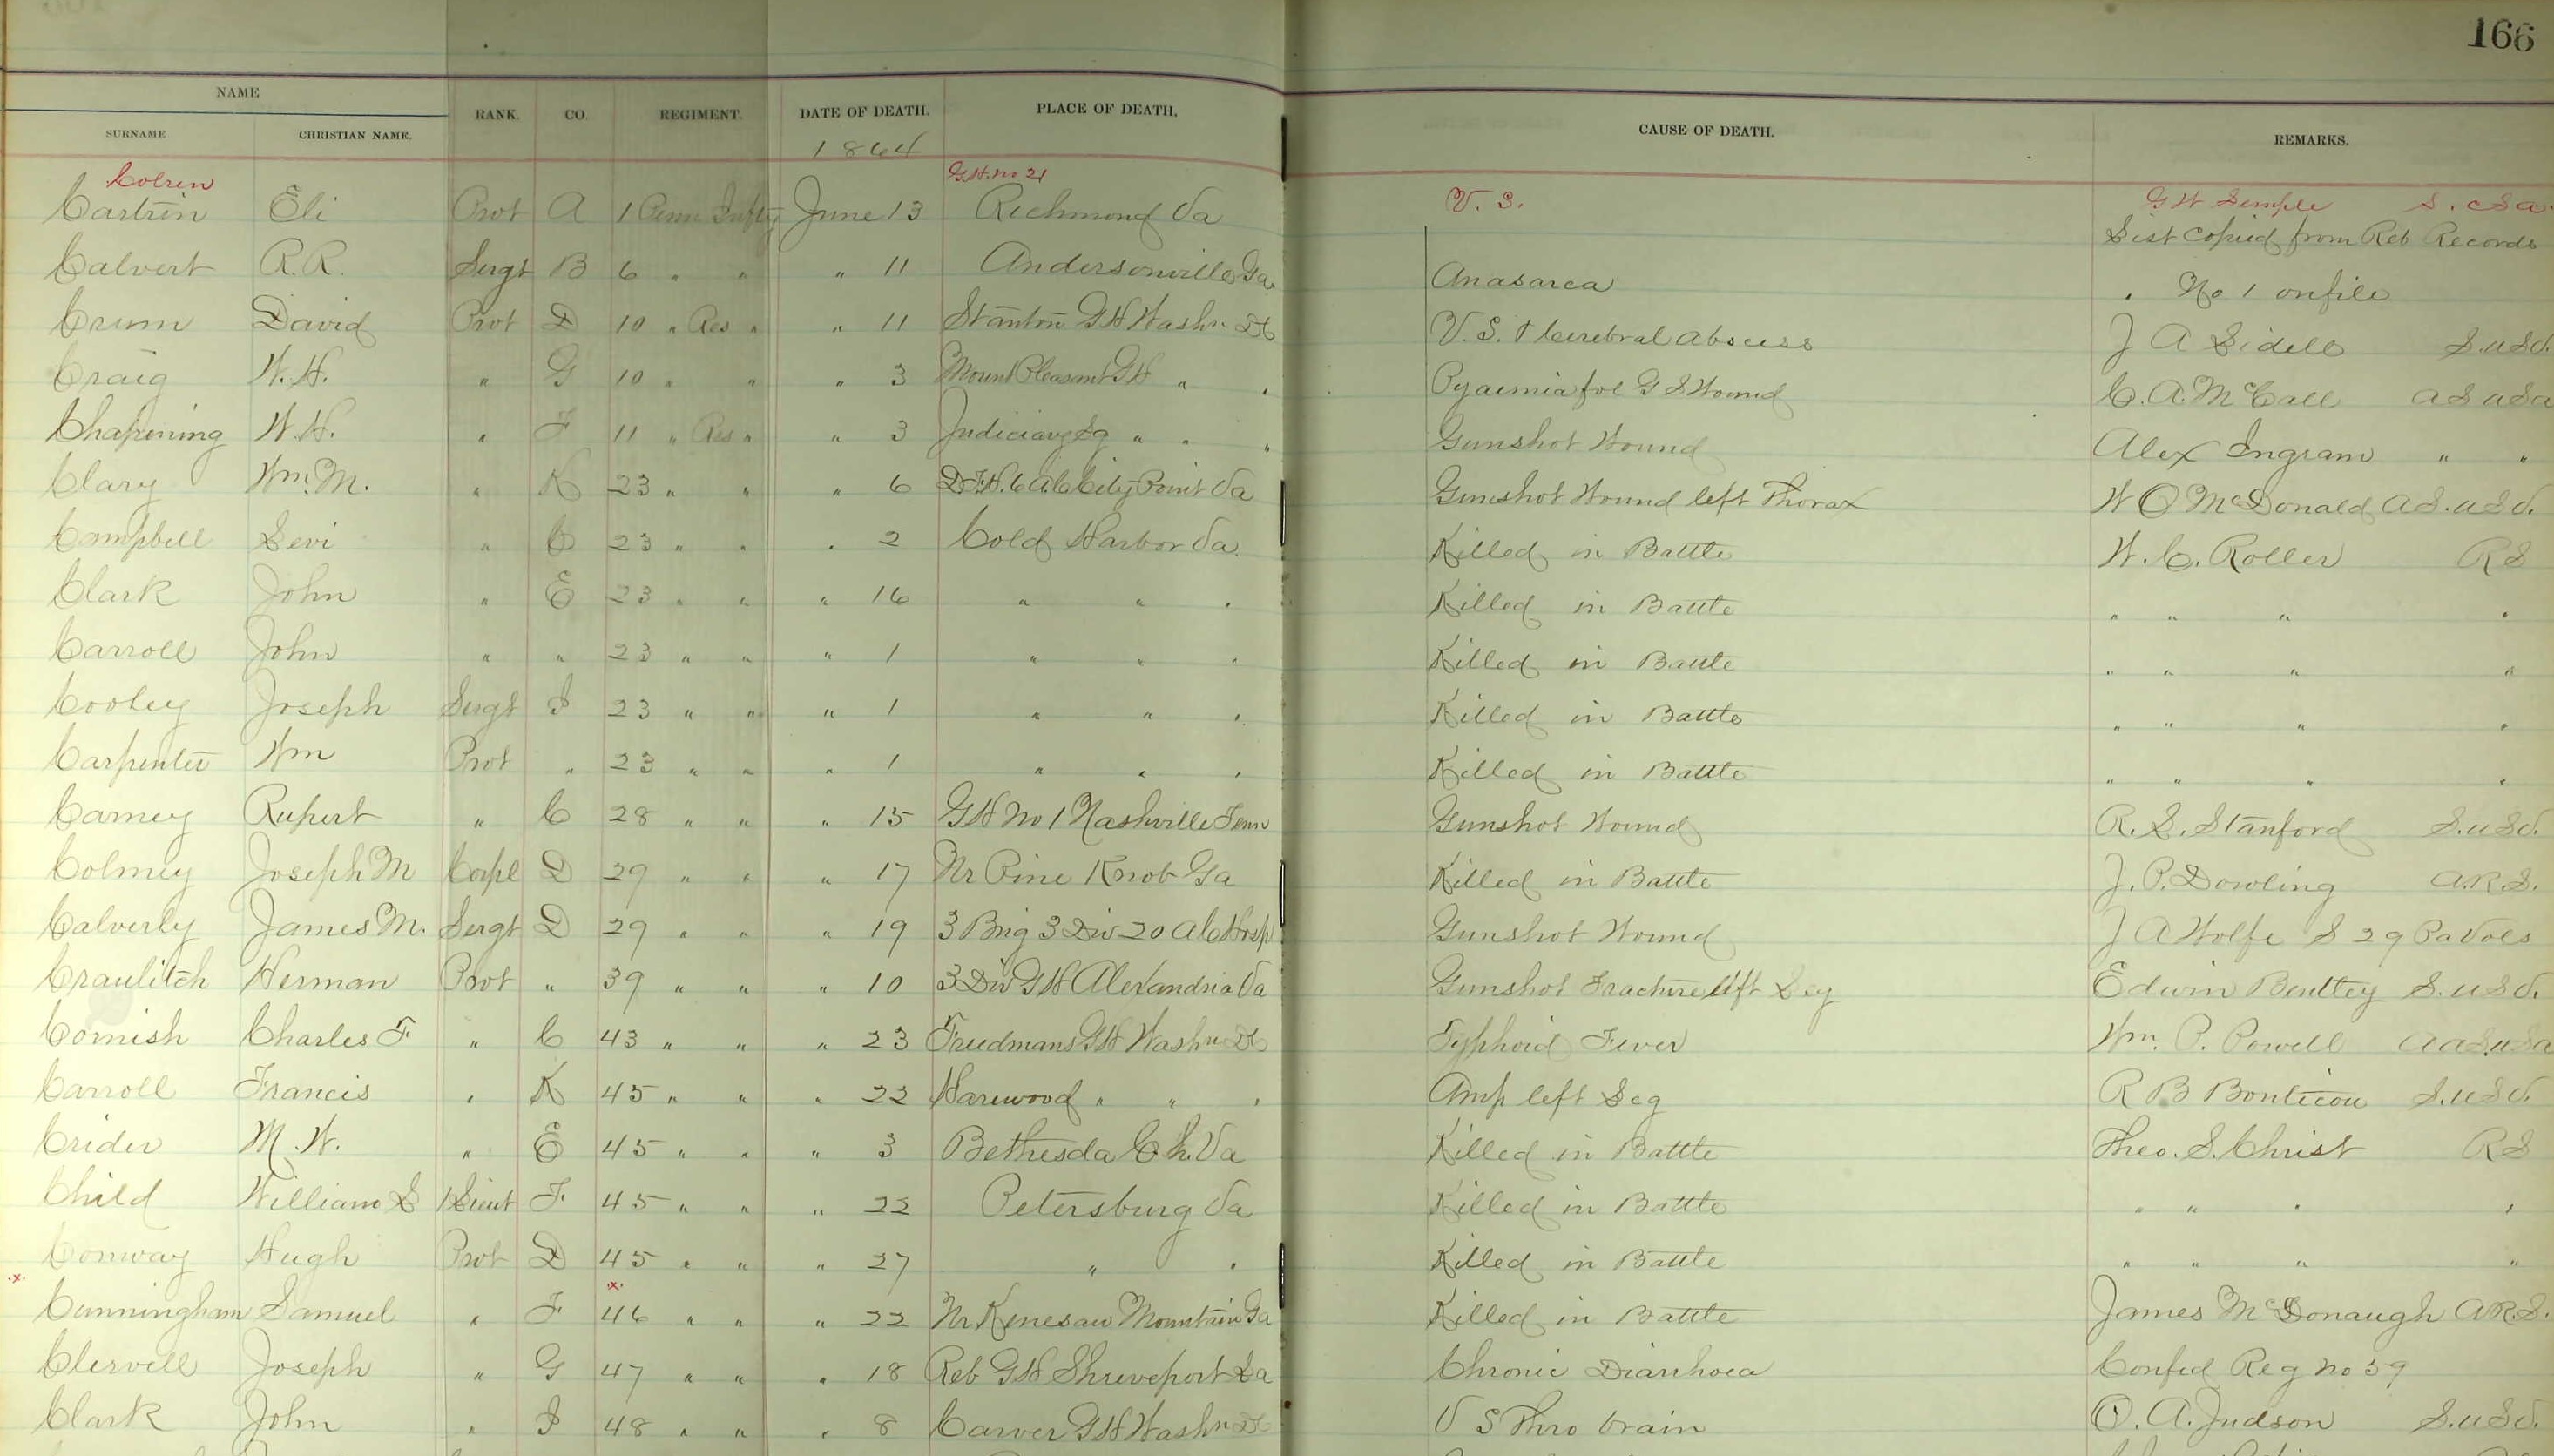 166
NAME
SURNAME CHRISTIAN NAME. RANK. CO. REGIMENT. DATE OF DEATH. PLACE OF DEATH. CAUSE OF DEATH. REMARKS.
1864
Colren G.H. no 21 V. S. G W Semple S. CSA.
Cartrin Eli Prvt A 1 Penn Infty June 13 Richmond Va
List copied from Reb Records
Calvert R.R. Sergt B 6 " " " 11 Andersonville Ga Anasarca " No 1 on file
Crum David Prvt D 10 " Res " " 11 Stanton GH Washn DC V. S. & Cerebral abscess J A Sidell S.USV.
Craig W.H. " G 10 " " " 3 Mount Pleasant GH " " Pyaemia fol G S Wound C. A. McCall AS USA
Chapining W.H. " F 11 " Res " " 3 Judiciary Sq " " " Gunshot Wound Alex Ingram " "
Clary Wm. M. " K 23 " " " 6 D.F.H. 6 A.C. City Point Va Gunshot Wound left Thorax W O McDonald AS.USV.
Campbell Levi " C 23 " " " 2 Cold Harbor Va. Killed in Battle W. C. Roller RS
Clark John " E 23 " " " 16 " " " Killed in Battle " " " "
Carroll John " " 23 " " " 1 " " " Killed in Battle " " " "
Cooley Joseph Sergt I 23 " " " 1 " " " Killed in Battle " " " "
Carpenter Wm Prvt " 23 " " " 1 " " " Killed in Battle " " " "
Carney Rupert " C 28 " " " 15 GH No 1 Nashville Tenn Gunshot Wound R. L. Stanford S.USV.
Colmey Joseph M Corpl D 29 " " " 17 Nr Pine Knob Ga Killed in Battle J. P. Dowling A.R.S.
Calverly James M. Sergt D 29 " " " 19 3 Brig 3 Div 20 AC Hosp Gunshot Wound J A Wolfe S 29 Pa Vols
Craulitch Herman Prvt " 39 " " " 10 3 Div GH Alexandria Va Gunshot Fracture left Leg Edwin Bentley S.USV.
Cornish Charles F " C 43 " " " 23 Freedmans GH Washn DC Typhoid Fever Wm. P. Powell AAS.USA
Carroll Francis " K 45 " " " 22 Harewood " " " Amp left Leg R B Bontecou S.USV.
Crider M. W. " E 45 " " " 3 Bethesda Ch. Va Killed in Battle Theo. S. Christ RS
Child William S 1 Lieut F 45 " " " 22 Petersburg Va Killed in Battle " " " "
Conway Hugh Prvt D 45 " " " 27 " " Killed in Battle " " " "
.x. .x.
Cunningham Samuel " F 46 " " " 22 Nr Kenesaw Mountain Ga Killed in Battle James McDonaugh A.R.S.
Clervell Joseph " G 47 " " " 18 Reb GH Shreveport La Chronic Diarrhoea Confed Reg no 39
Clark John " I 48 " " " 8 Carver GH Washn DC V S Thro brain O. A. Judson S.USV.